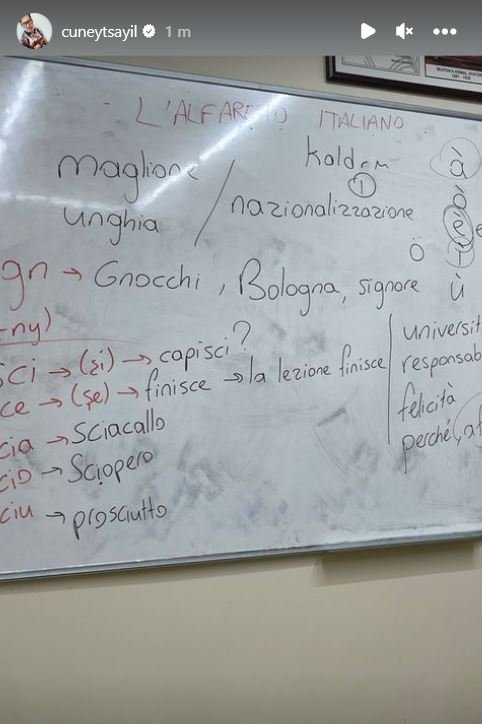 cuneytsayil 1 m
L'ALFABETO ITALIANO
maglione
unghia
nazionalizzazione
1
à
ù
gn → Gnocchi, Bologna, signore
-ny)
sci → (şi) → capisci?
ce → (şe) → finisce → la lezione finisce
cia → Sciacallo
cio → Sciopero
ciu → prosciutto
universit
responsab
felicità
perché, af